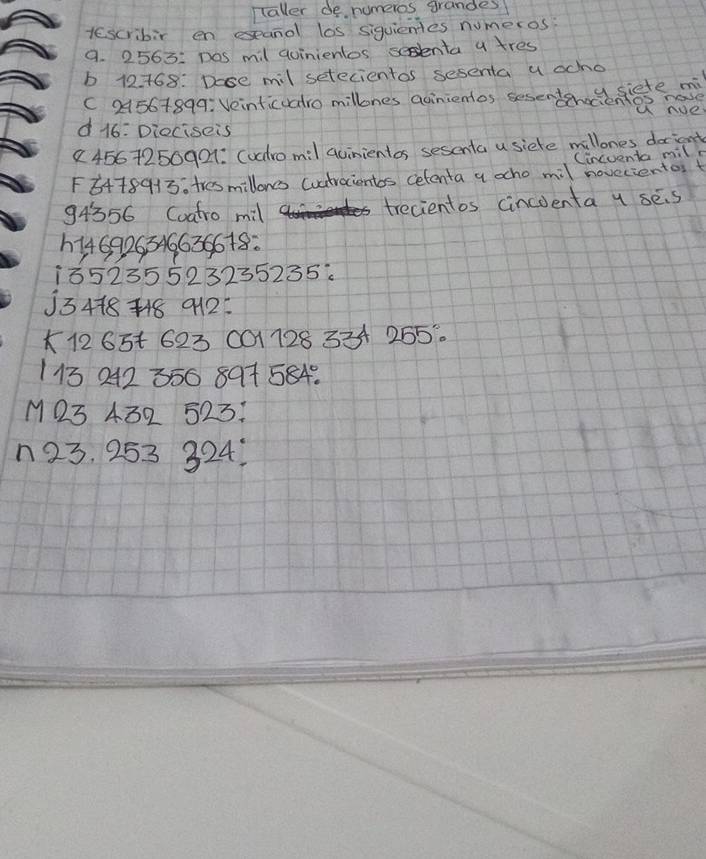 Taller de numeros grandes
rescribir en español los siguientes numeros:
a. 2563: Dos mil quinientos sesenta y tres
b 12768: Doce mil setecientos sesenta y ocho
C 24567899: Veinticuatro millones quinientos sesenta y siete mil
ochocientos nove
y nue
d 16: Dieciseis
e 4567250921: Cuatro mil quinientos sesenta y siete millones docient
cincuenta mil n
F 3478913: tres millones cuatrocientos cetenta y ocho mil novecientos t
g 4356 Cuatro mil trecientos cincuenta y seis
h 146926346636678:
i 35235523235235:
J 3478 718 912:
K 12 657 623 001 128 334 255:
l 13 242 356 897 584:
M 23 432 523:
n 23. 253 324: